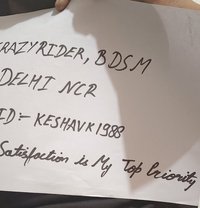 RAZYRIDER, BDSM
DELHI NCR
ID:- KESHAVK1988
Satisfaction is My Top Priority